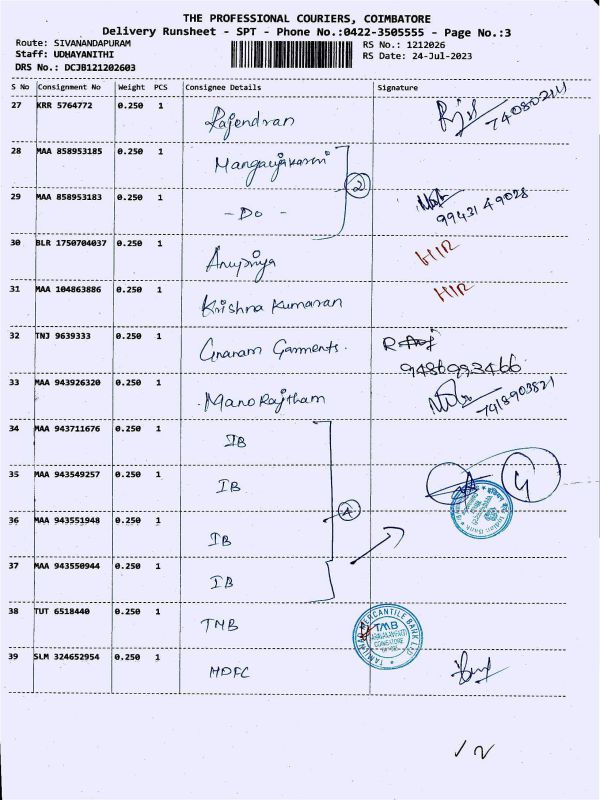 THE PROFESSIONAL COURIERS, COIMBATORE
Delivery Runsheet - SPT - Phone No.:0422-3505555 - Page No.:3
Route: SIVANANDAPURAM
RS No.: 1212026
Staff: UDHAYANITHI
RS Date: 24-Jul-2023
DRS No.: DCJB121202603
S No Consignment No Weight PCS Consignee Details Signature
27 KRR 5764772 0.250 1 Rajendran
28 MAA 858953185 0.250 1
29 MAA 858953183 0.250 1 - Do - 99431 49028
2
30 BLR 1750704037 0.250 1 Anupriya
31 MAA 104863886 0.250 1 Krishna Kumaran
32 TNJ 9639333 0.250 1 Gnanam Garments.
9486993466
33 MAA 943926320 0.250 1 Mano Rajitham 7418903821
34 MAA 943711676 0.250 1 IB
35 MAA 943549257 0.250 1 IB
4
36 MAA 943551948 0.250 1 IB
37 MAA 943550944 0.250 1 IB
38 TUT 6518440 0.250 1 TMB
TAMILNAD MERCANTILE BANK LTD.
TMB
39 SLM 324652954 0.250 1 HDFC